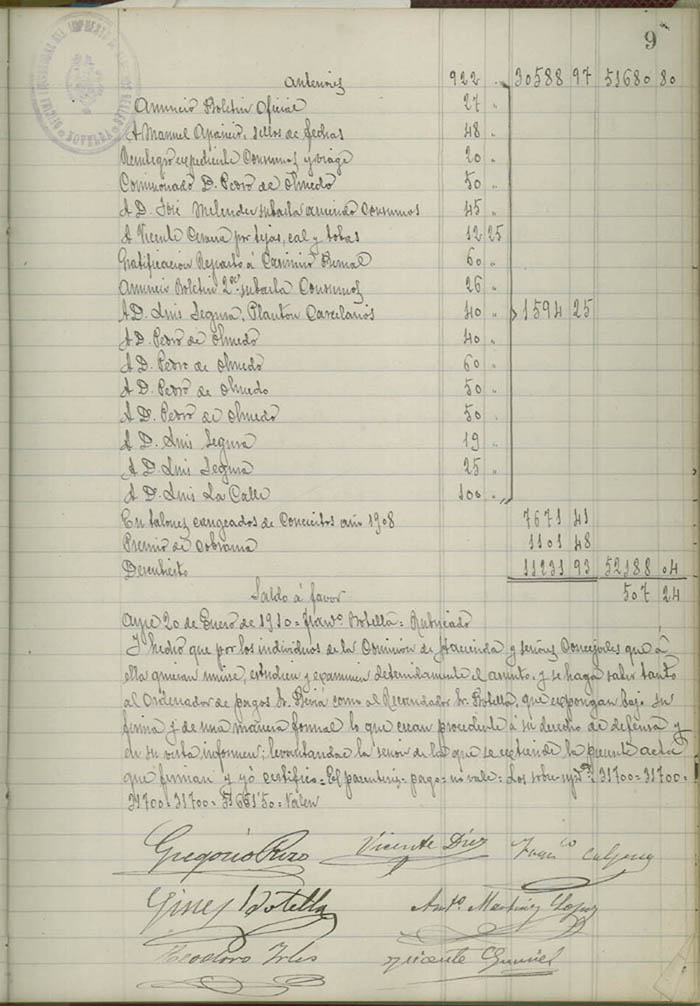 9
Anteriores 922 " 30588 97 51680 80
Anuncio Boletin Oficial 27 "
A Manuel Aparicio, sellos de fechas 48 "
Reintegro expediente Consumos y viage 20 "
Comisionado D. Pedro de Olmedo 50 "
A D. José Melendez subasta arriendo Consumos 45 "
A Vicente Cervera por tejas, cal y tobas 12 25
Gratificacion Reparto á Casimiro Bernal 60 "
Anuncio Boletin 2ª subasta Consumos 26 "
A D. Luis Segura, Planton Carcelarios 40 " 1594 25
A D. Pedro de Olmedo 40 "
A D. Pedro de Olmedo 60 "
A D. Pedro de Olmedo 50 "
A D. Pedro de Olmedo 50 "
A D. Luis Segura 19 "
A D. Luis Segura 25 "
A D. Luis La Calle 100 "
En talones cangeados de Conciertos año 1908 7671 41
Premio de Cobranza 1101 48
Descubierto 11231 93 52188 04
Saldo á favor 507 24
Aspe 20 de Enero de 1910 = Franco Botella = Rubricado
Y hedió que por los individuos de la Comision de Hacienda y señores Concejales que á
ella quieran unirse, estudien y examinen detenidamente el asunto, y se haga saber tanto
al Ordenador de pagos Sr. como al Recaudador Sr. Botella, que expongan bajo su
firma y de una manera formal lo que crean procedente á su derecho de defensa y
en su vista informen; levantandose la sesion de la que se extiende la presente acta
que firman y yo certifico = El parentesis = pago = no vale = Los 31700 = 31700 =
31700 = 31700 = 31661'50 = Valen
Gregorio Rizo Vicente Díez Franco Calpena
Gines Botella Anto. Martinez Lopez
Teodoro Vicente